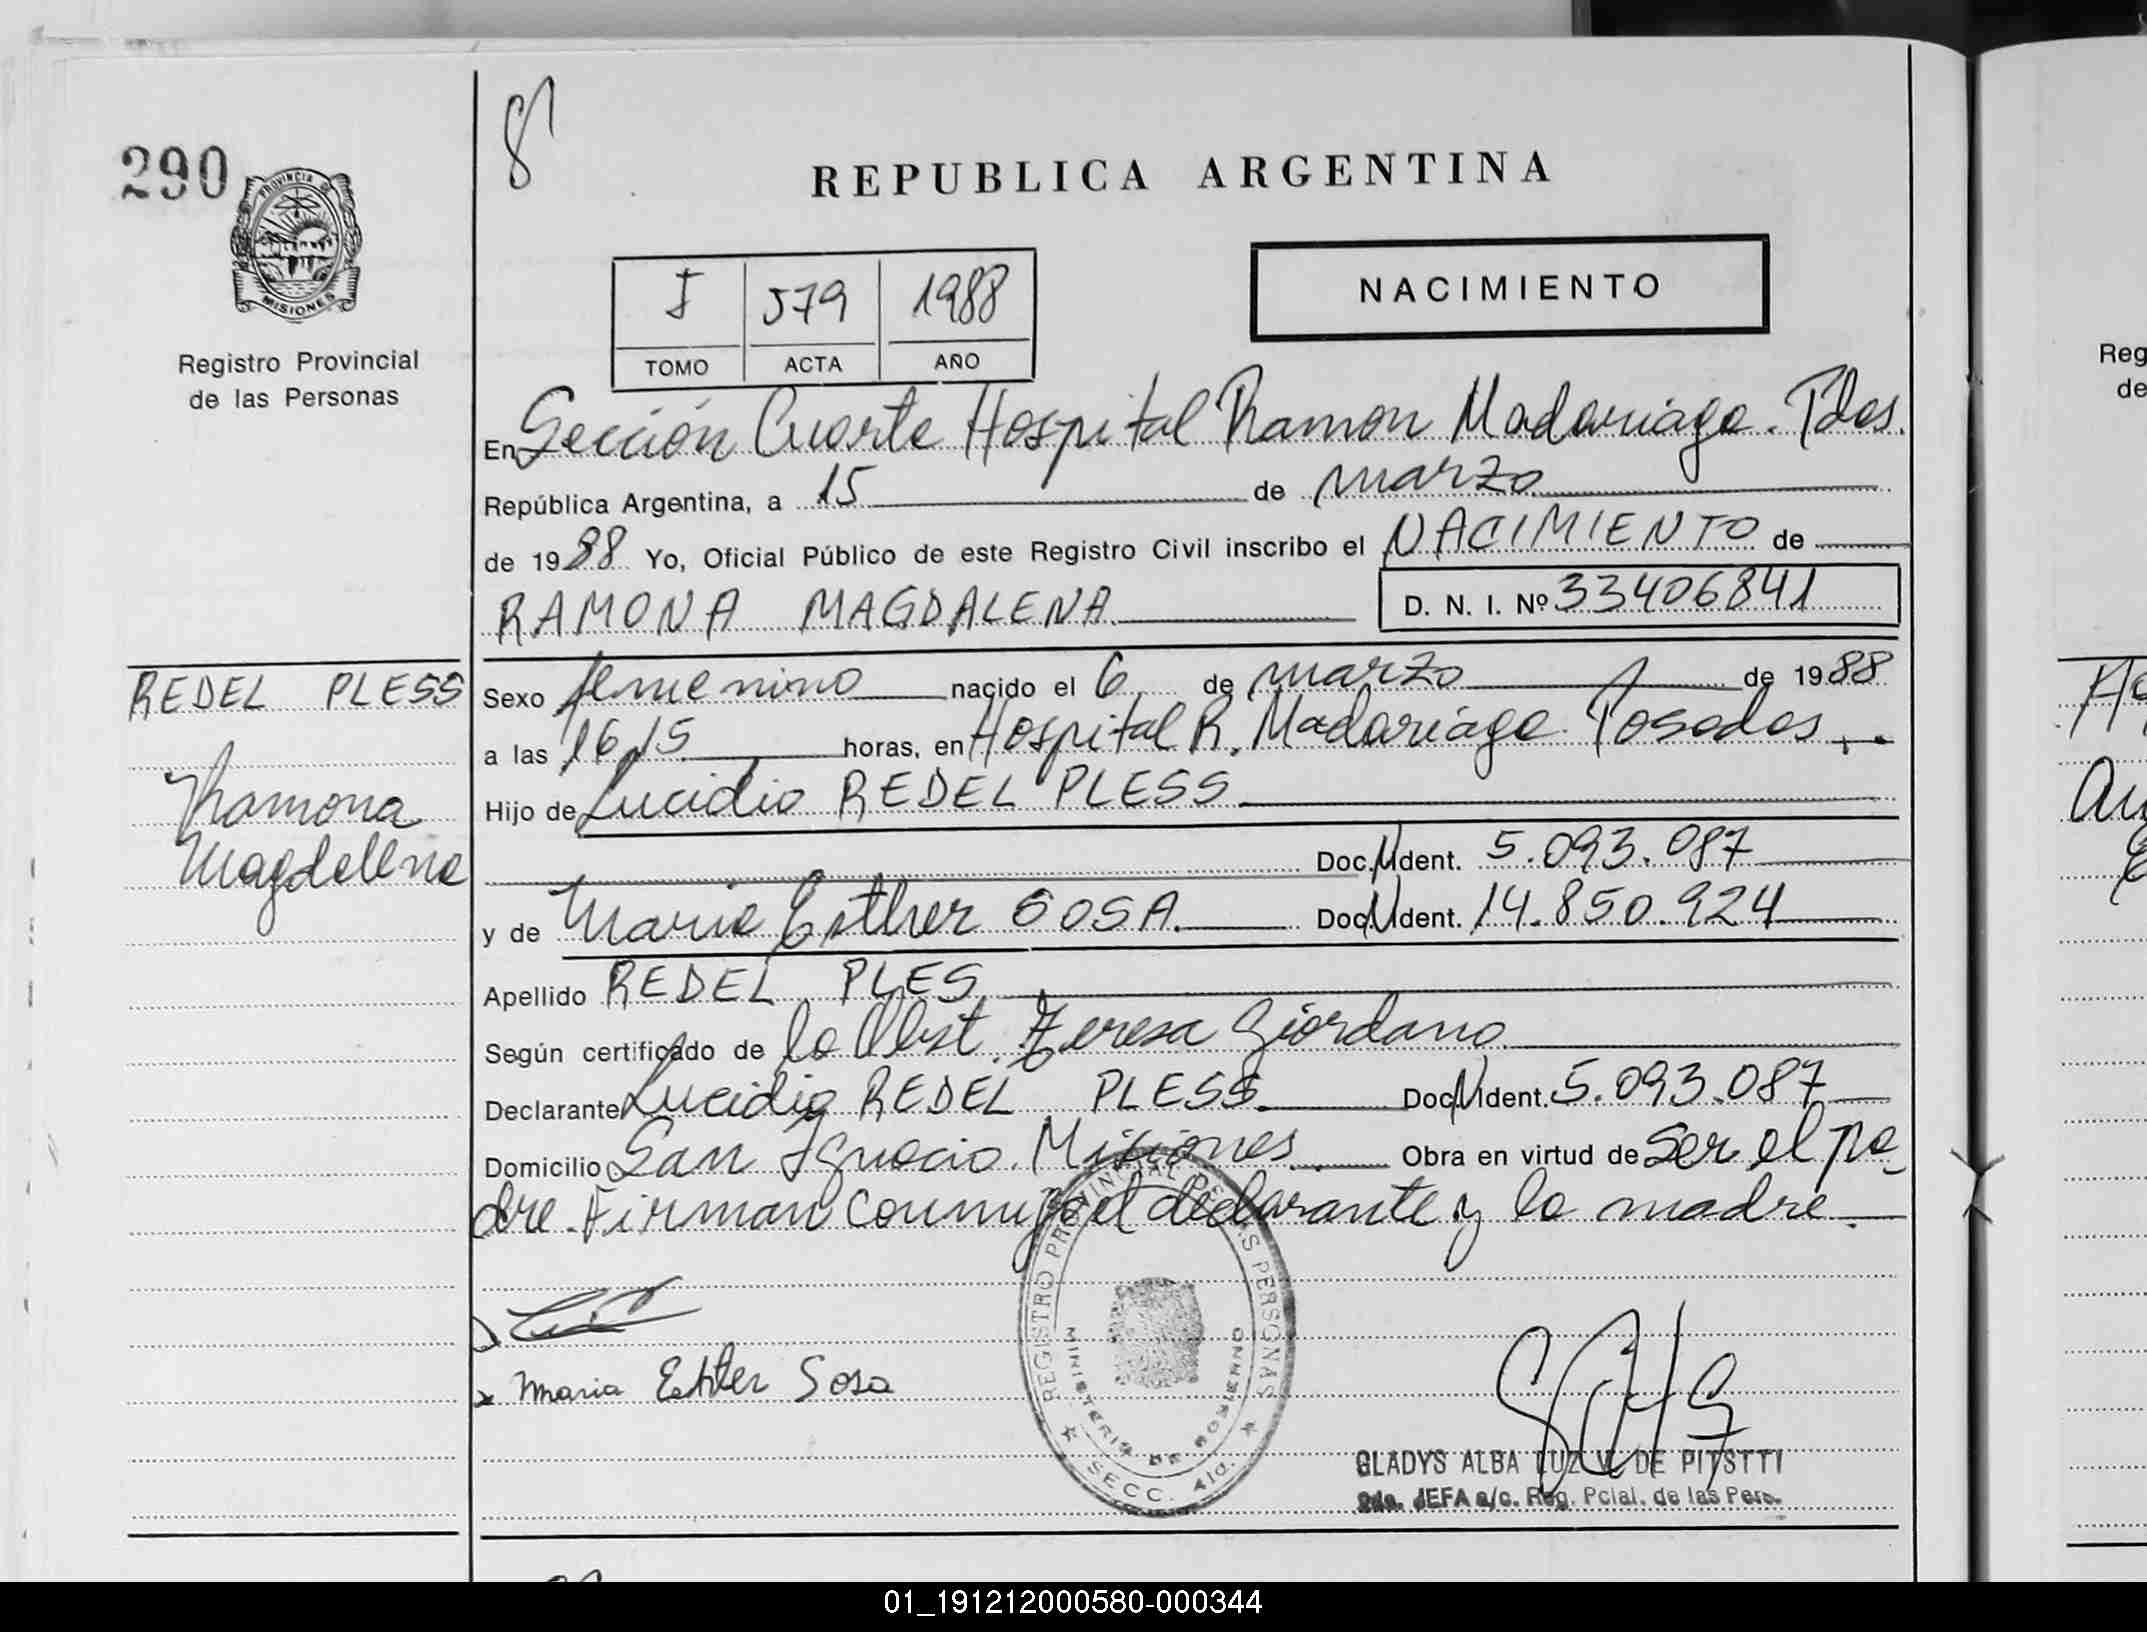 290
8
REPUBLICA ARGENTINA
PROVINCIA DE
MISIONES
Registro Provincial
de las Personas
I 579 1988
TOMO ACTA AÑO
NACIMIENTO
En Sección Cuarta Hospital Ramon Madariaga. Pdas.
República Argentina, a 15 de marzo
de 1988 Yo, Oficial Público de este Registro Civil inscribo el NACIMIENTO de
RAMONA MAGDALENA D. N. I. Nº 33406841
REDEL PLESS
Ramona
Magdalena
Sexo femenino nacido el 6 de marzo de 1988
a las 16,15 horas, en Hospital R. Madariaga Posadas.
Hijo de Lucidio REDEL PLESS
Doc. Ident. 5.093.087
y de Maria Esther SOSA. Doc. Ident. 14.850.924
Apellido REDEL PLES
Según certificado de la Obst. Teresa Giordano
Declarante Lucidio REDEL PLESS Doc. Ident. 5.093.087
Domicilio San Ignacio. Misiones Obra en virtud de ser el pa-
dre. Firman conmigo el declarante y la madre.
Maria Esther Sosa
REGISTRO PROVINCIAL DE LAS PERSONAS
MINISTERIO DE GOBIERNO
SECC. 4ta.
GLADYS ALBA LUZ V. DE PITSTTI
2da. JEFA a/c. Reg. Pcial. de las Pers.
Reg
de
01_191212000580-000344